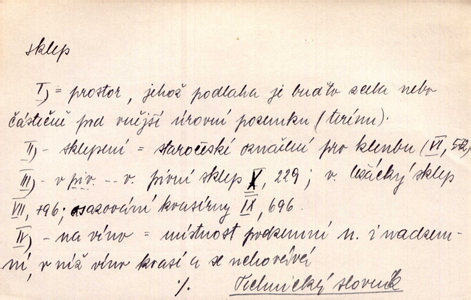 sklep
I) = prostor, jehož podlaha je buďto zcela nebo
částečně pod vnější úrovní pozemku (terénu).
II) - sklepení = staročeské označení pro klenbu (VI, 52)
III) - v piv. - v. pivní sklep X, 229; v. ležácký sklep
VII, 796; sazování kvasírny IX, 696.
IV) - na víno = místnost podzemní n. i nadzem-
ní, v níž víno kvasí a se
./. Technický slovník